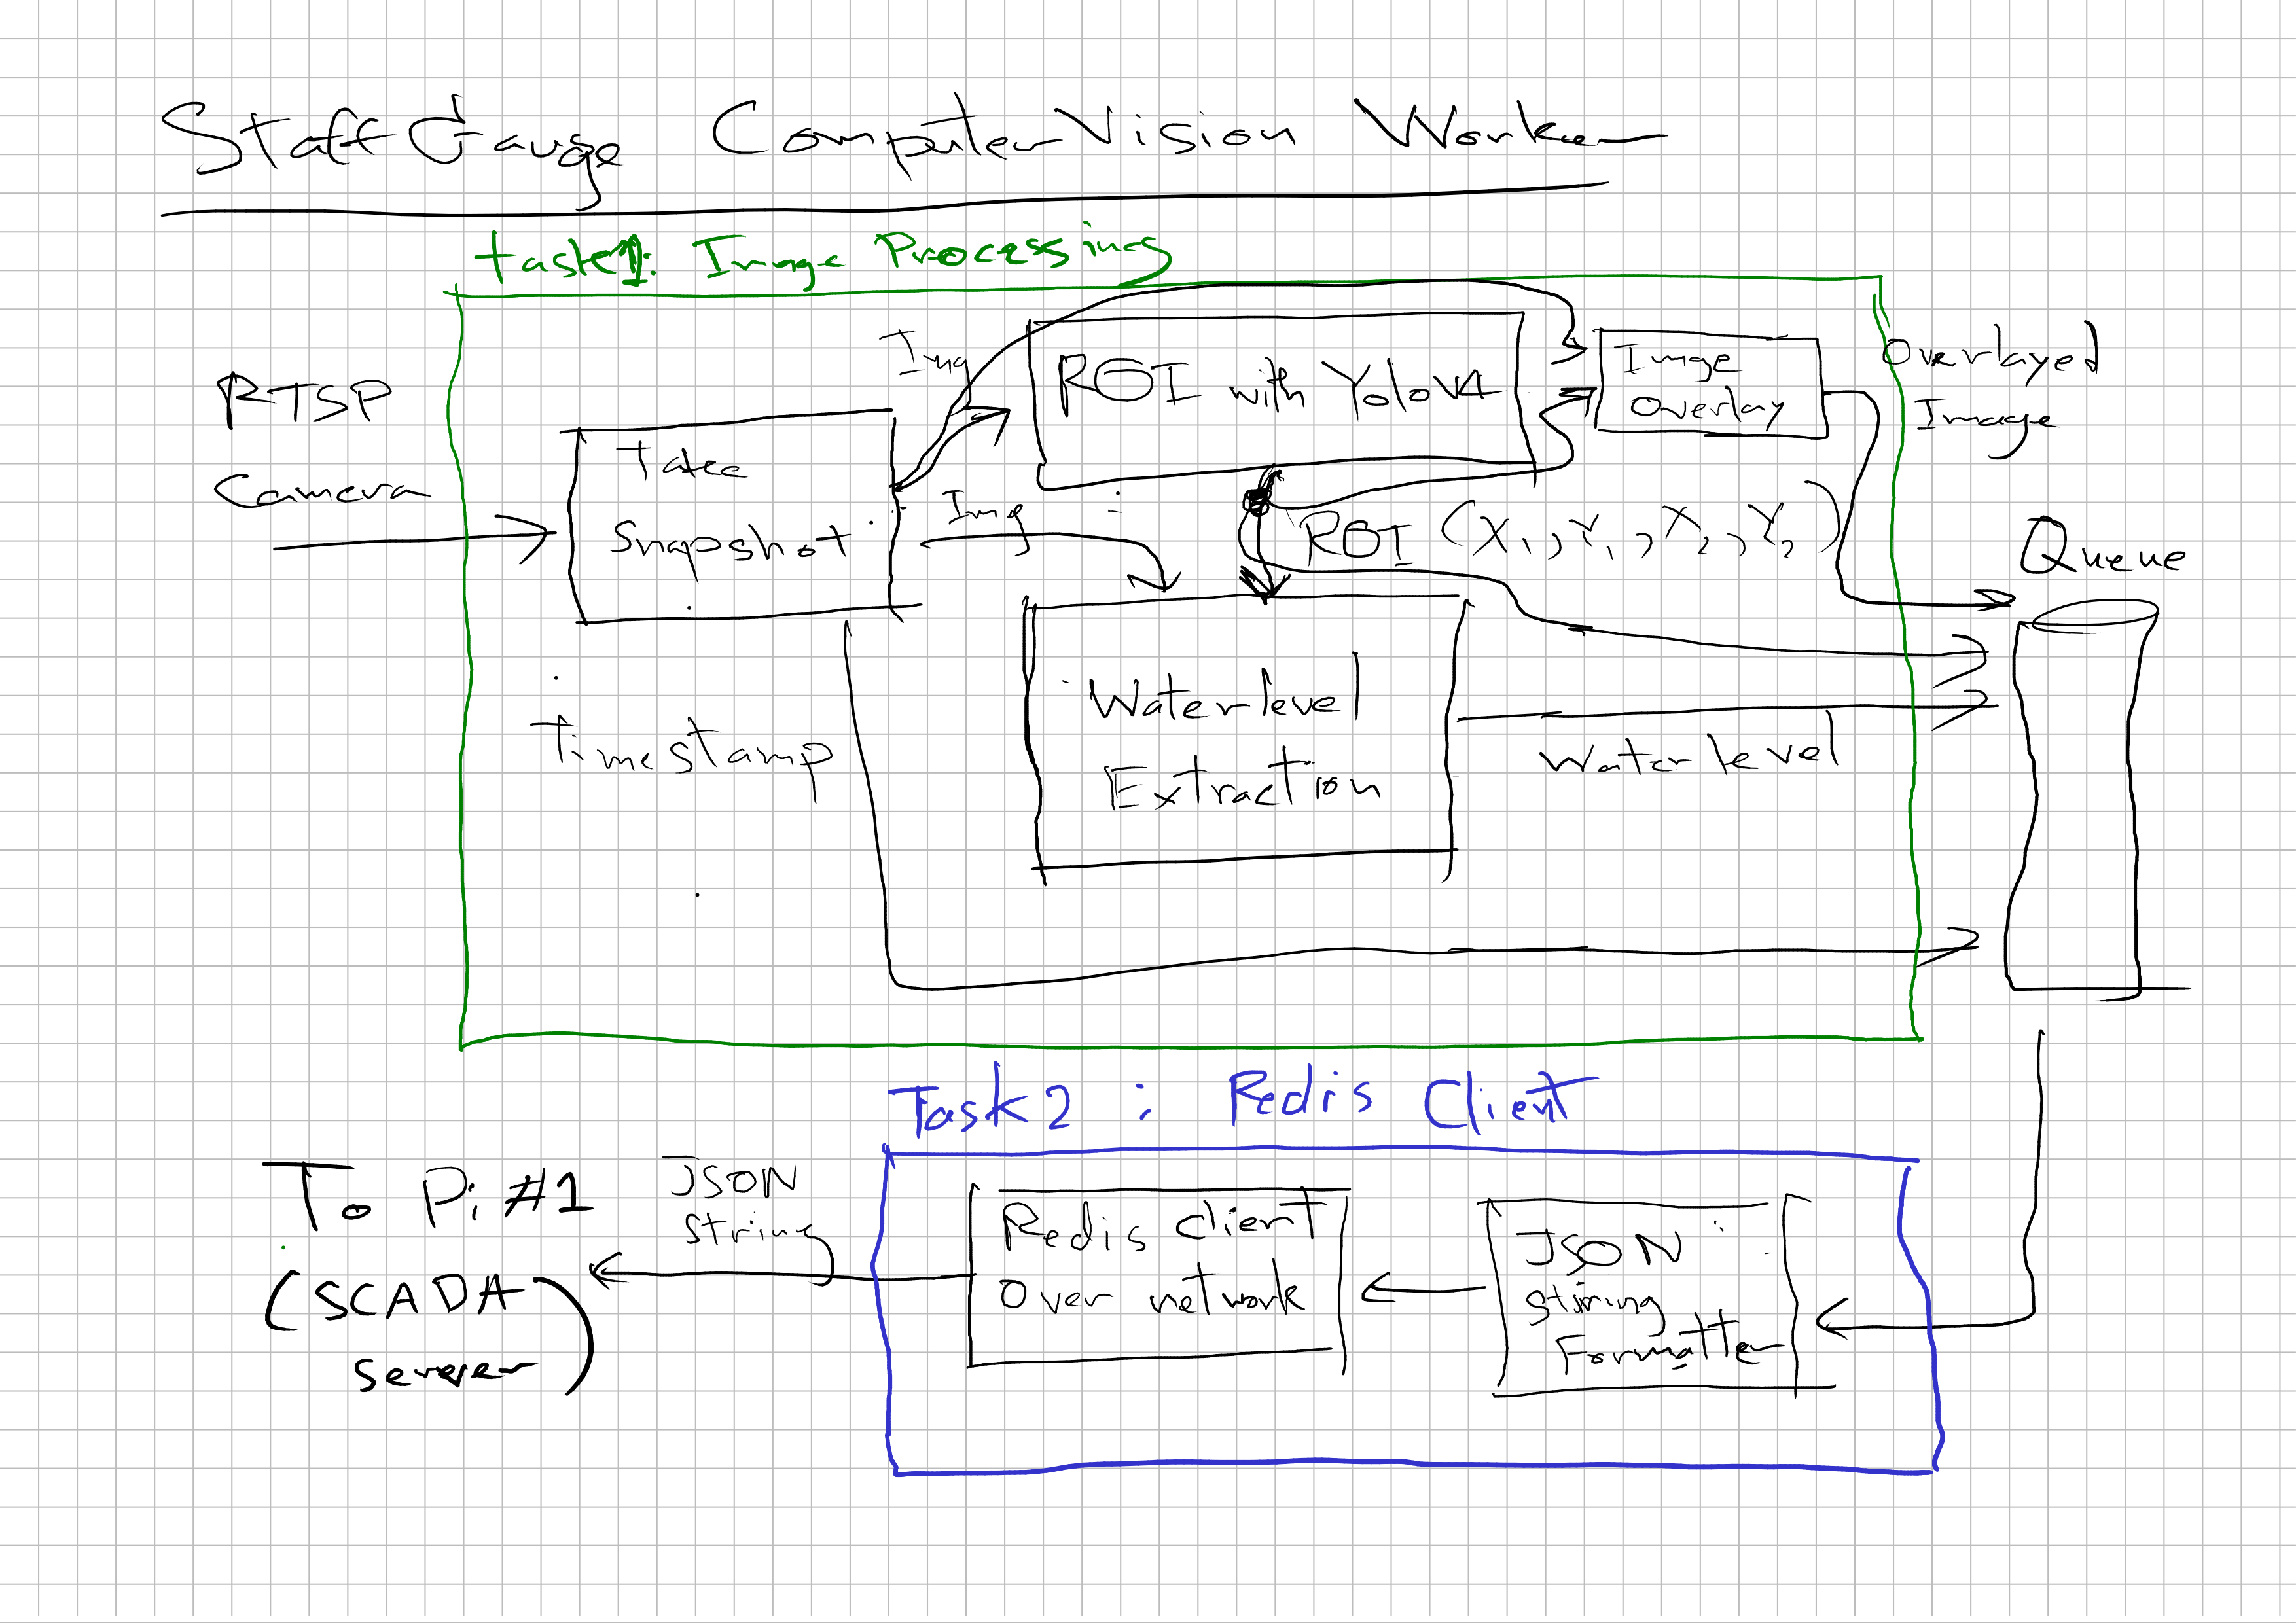 Staff Gauge Computer Vision Worker
task1: Image Processing
RTSP
Camera
Take
Snapshot
Img
Img
ROI with Yolov4
Image
Overlay
Overlayed
Image
ROI (X1, Y1, X2, Y2)
Queue
timestamp
Waterlevel
Extraction
Waterlevel
Task2 : Redis Client
To Pi #1
(SCADA
server)
JSON
String
Redis client
Over network
JSON
String
Formatter